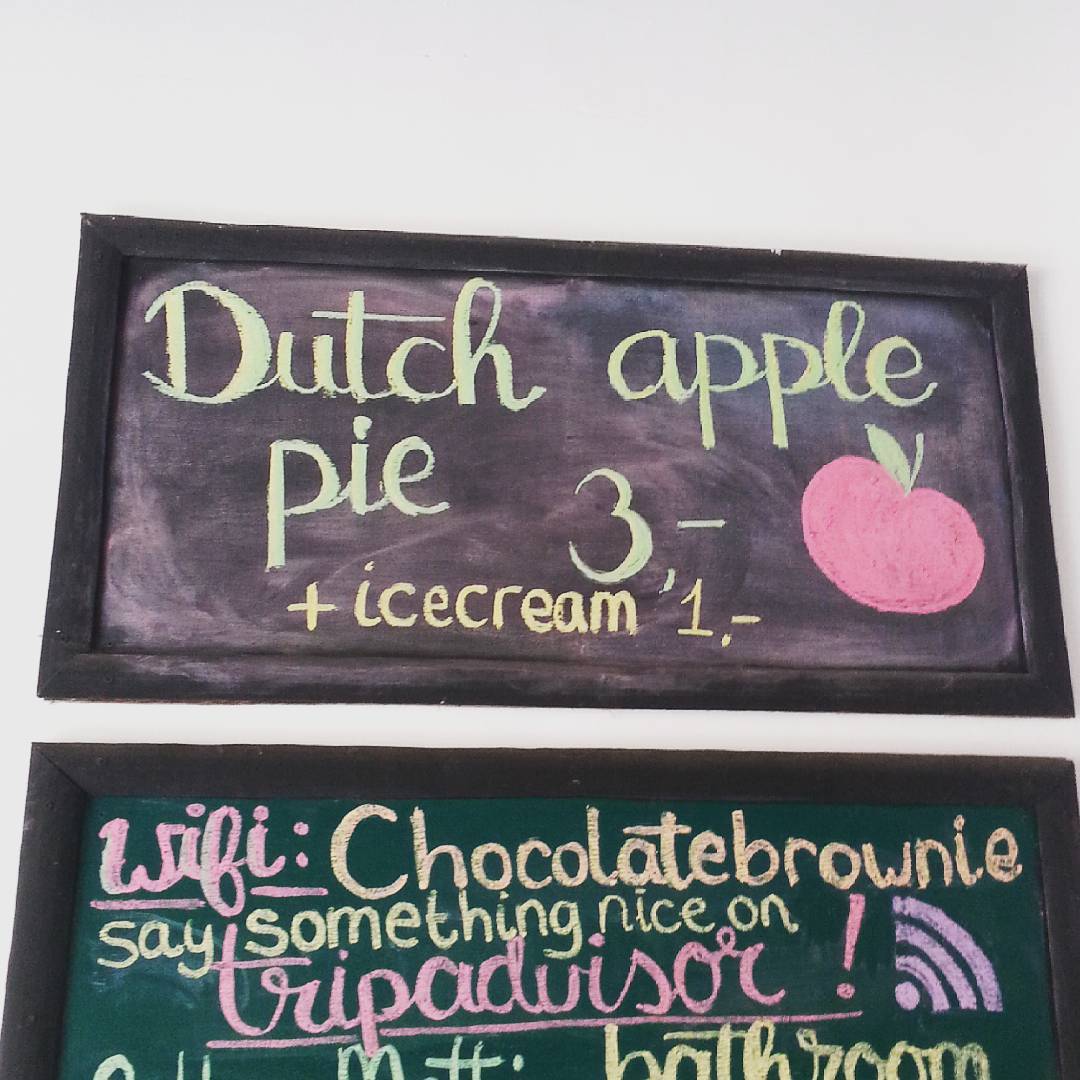 Dutch apple
pie 3,-
+ icecream 1,-
wifi: Chocolatebrownie
say something nice on
tripadvisor!
bathroom